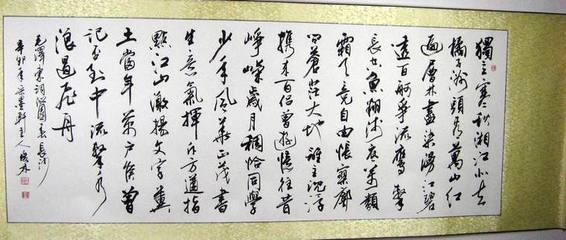 獨立寒秋湘江北去
橘子洲頭看萬山紅
遍層林盡染漫江碧
透百舸爭流鷹擊
長空魚翔淺底萬類
霜天竟自由悵寥廓
問蒼茫大地誰主沉浮
攜來百侶曾游憶往昔
崢嶸歲月稠恰同學
少年風華正茂書
生意氣揮斥方遒指
點江山激揚文字糞
土當年萬戶侯曾
記否到中流擊水
浪遏飛舟
毛澤東詞沁園春長沙
辛卯年墨軒主人